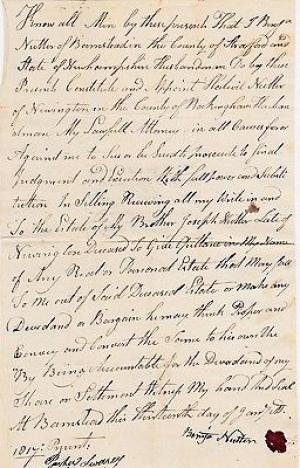 Know all Men by these presents That I Benja
Nutter of Barnstead in the County of Strafford and
State of Newhampshire Husbandman Do by these
Presents Constitute and Appoint Hodevil Nutter
of Newington in the County of Rockingham Husban
dman My Lawfull Attorney in all Causes for or
Against me to Sue or be Sued to prosecute to final
Judgment and Execution With full power and Substi
tution In Selling Receiving all my Write in and
To the Estate of My Brother Joseph Nutter Late of
Newington Deceased To Give Quittance in the Name
of Any Real or Personal Estate that May fall
To me out of Said Deceased Estate or make any
Devidend or Bargain he may think Proper and
Convey and Convert the Same to his own Use
By Being Accountable for the Devedend of my
Share or Settlement Witness My hand and Seal
At Barnstead this thirteenth day of Jany
1817 Present
Benja Nutter